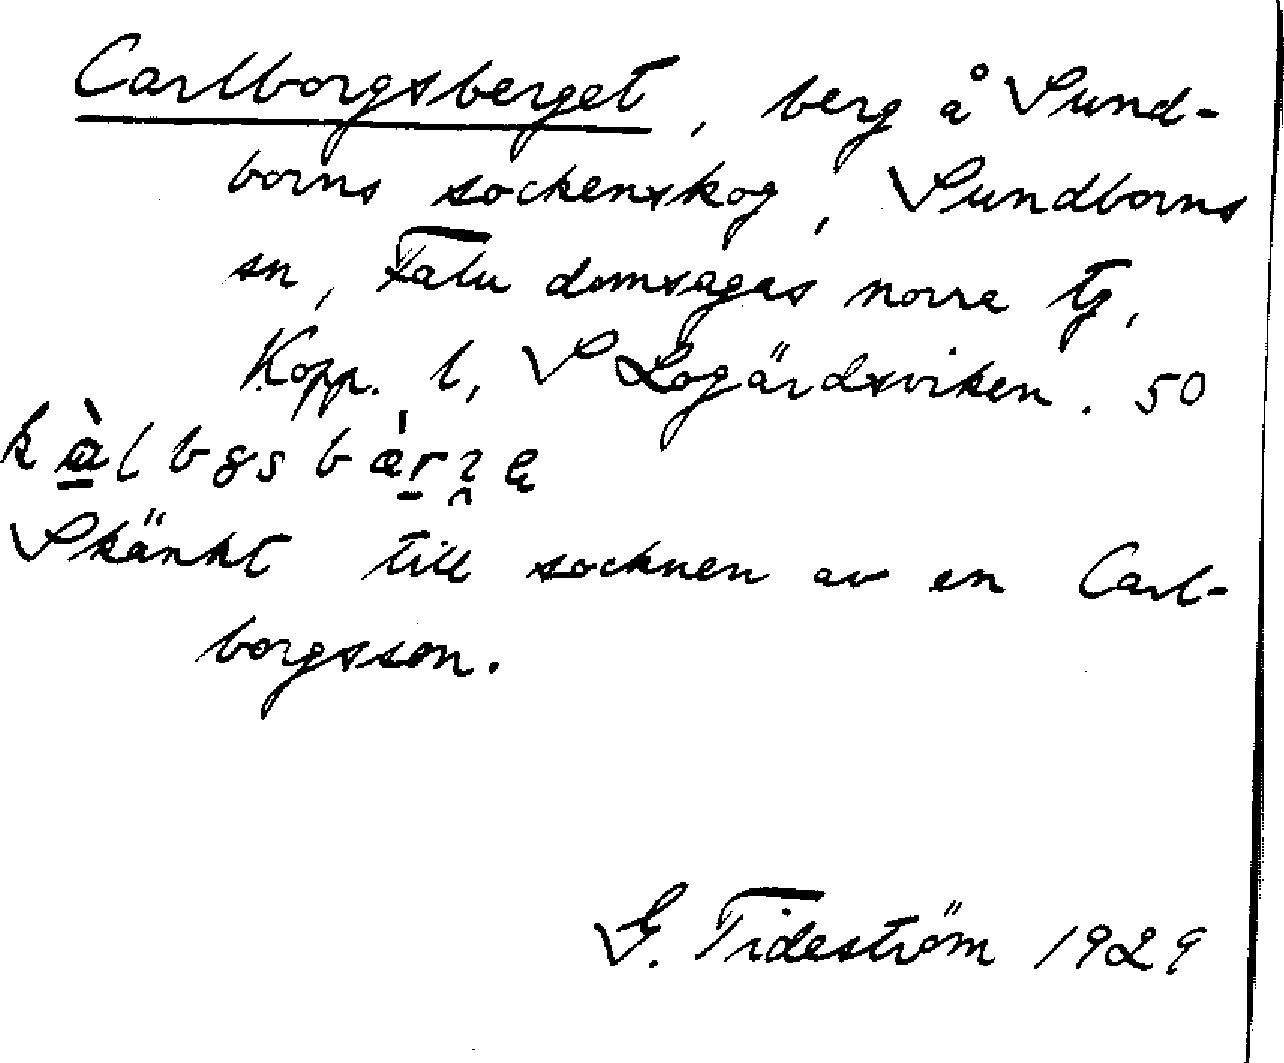 Carlborgsberget, berg å Sund-
borns sockenskog, Sundborns
sn, Falu domsagas norra tg,
Kopp. l, S Logärdsviken. 50
Skänkt till socknen av en Carl-
borgsson.
G. Tideström 1929